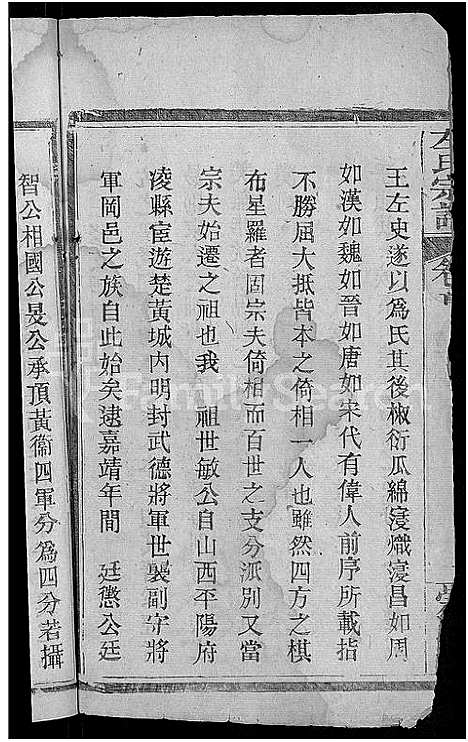 左氏宗譜 卷首
王左史遂以爲氏其後椒衍瓜綿寖熾寖昌如周
如漢如魏如晉如唐如宋代有偉人前序所載指
不勝屈大抵皆本之倚相一人也雖然四方之棋
布星羅者固宗夫倚相而百世之支分派別又當
宗夫始遷之祖也我 祖世敏公自山西平陽府
淩縣宦遊楚黃城内明封武德將軍世襲副守將
軍岡邑之族自此始矣逮嘉靖年間 廷懲公廷
智公相國公旻公承頂黃衞四軍分爲四分若攝
FamilySearch